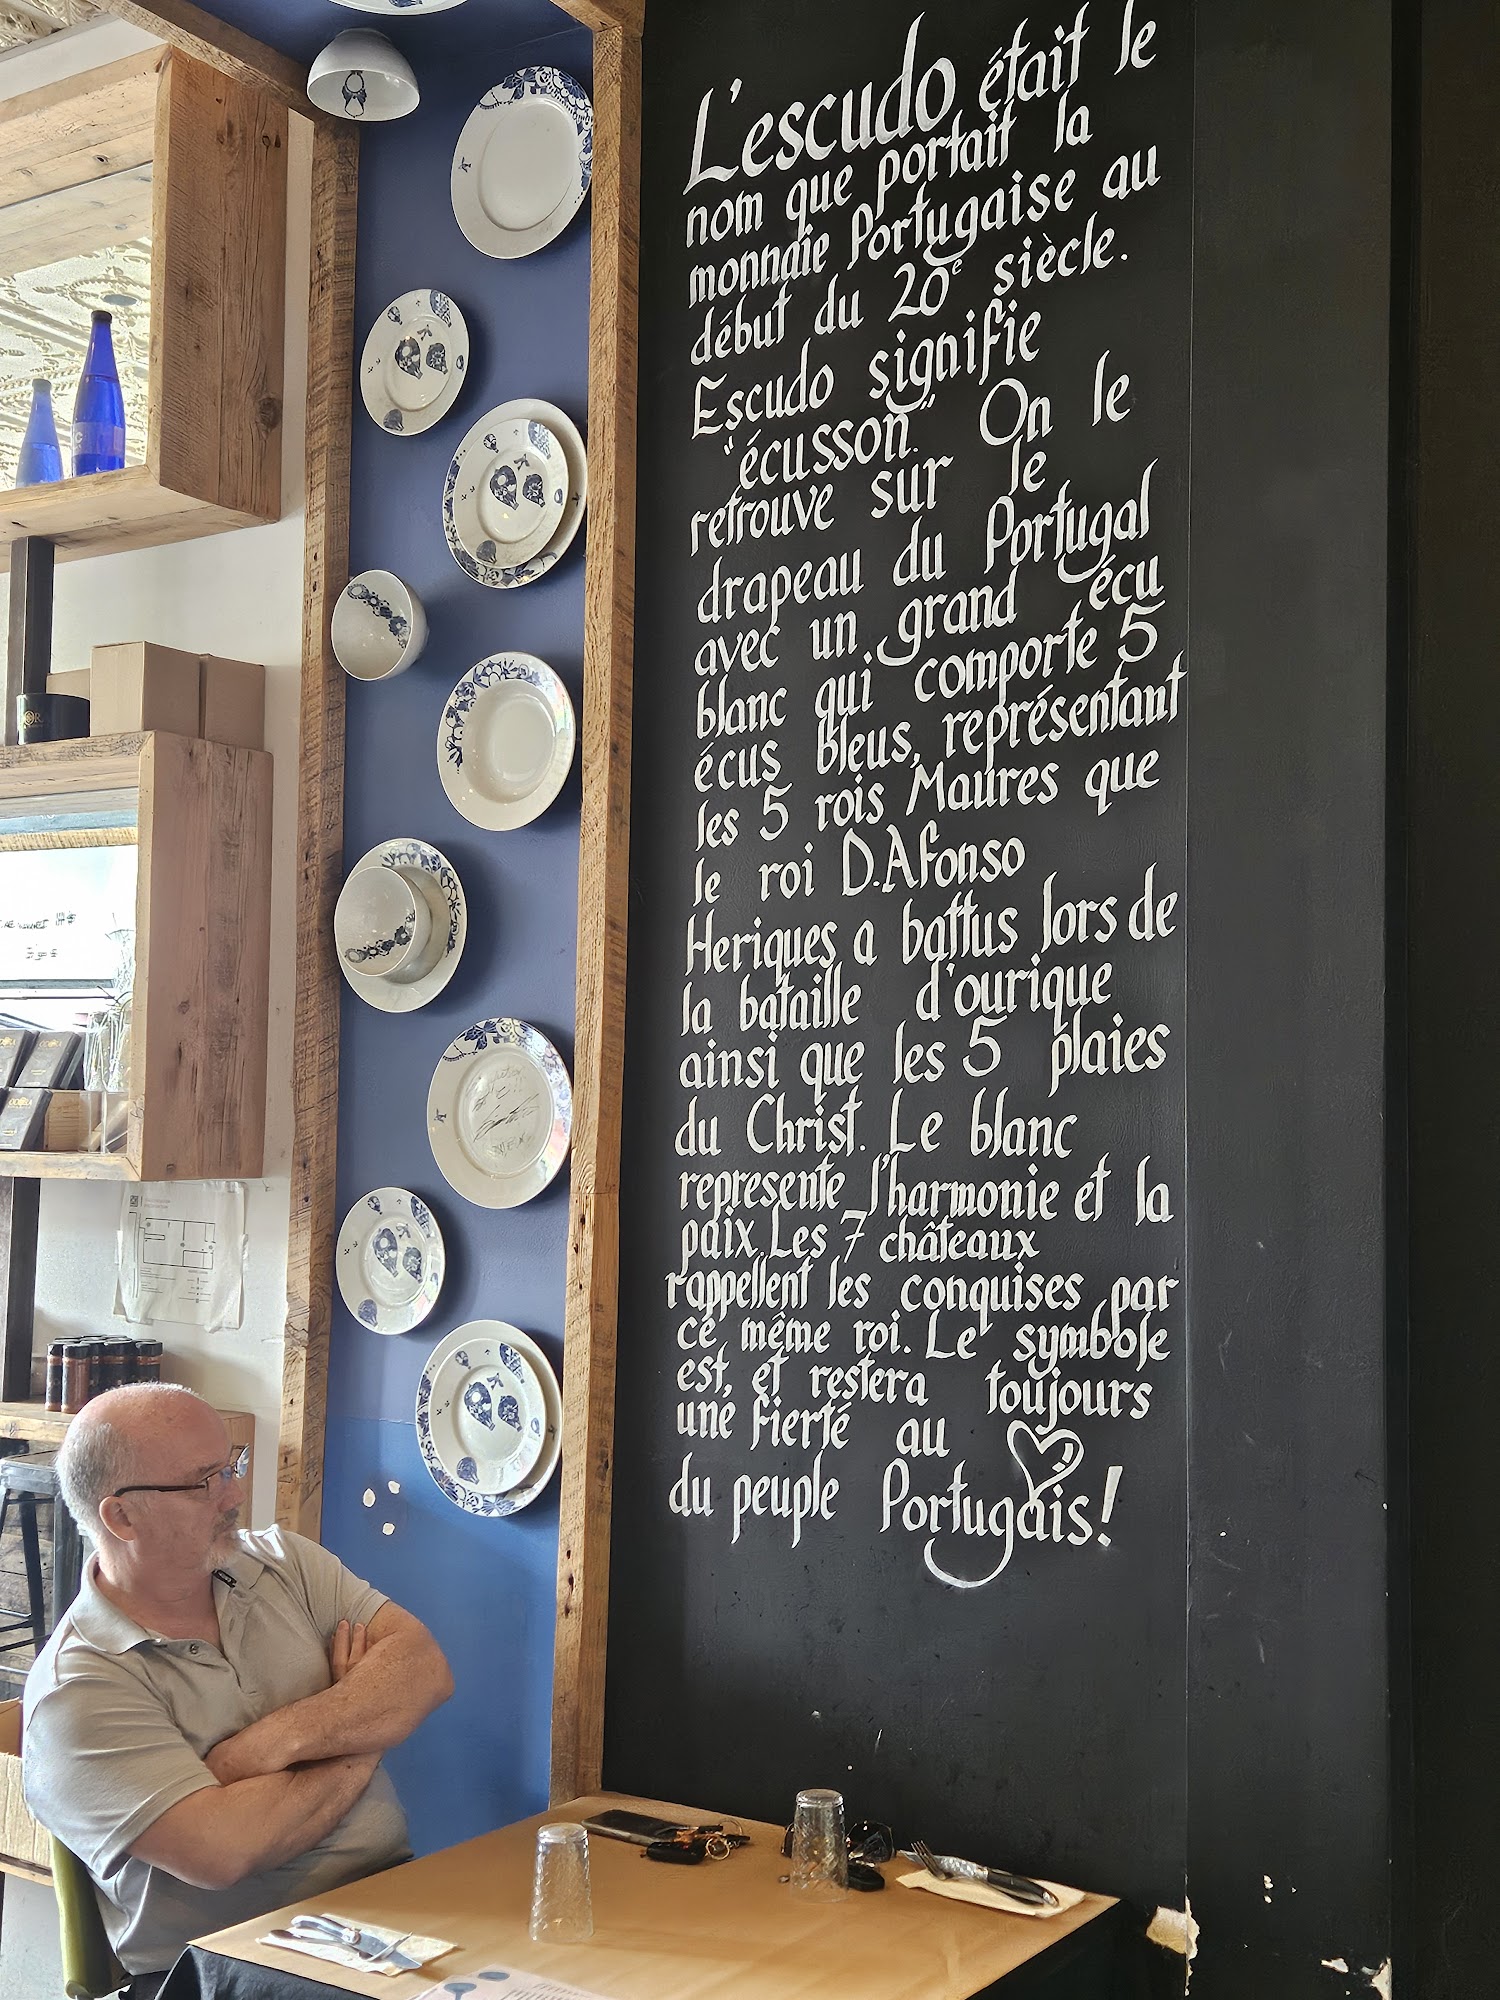 L'escudo était le
nom que portait la
monnaie Portugaise au
début du 20e siècle.
Escudo signifie
"écusson." On le
retrouve sur le
drapeau du Portugal
avec un grand écu
blanc qui comporte 5
écus bleus, représentant
les 5 rois Maures que
le roi D.Afonso
Heriques a battus lors de
la bataille d'ourique
ainsi que les 5 plaies
du Christ. Le blanc
represente l'harmonie et la
paix. Les 7 châteaux
rappellent les conquises par
ce même roi. Le symbole
est, et restera toujours
une fierté au
du peuple Portugais!